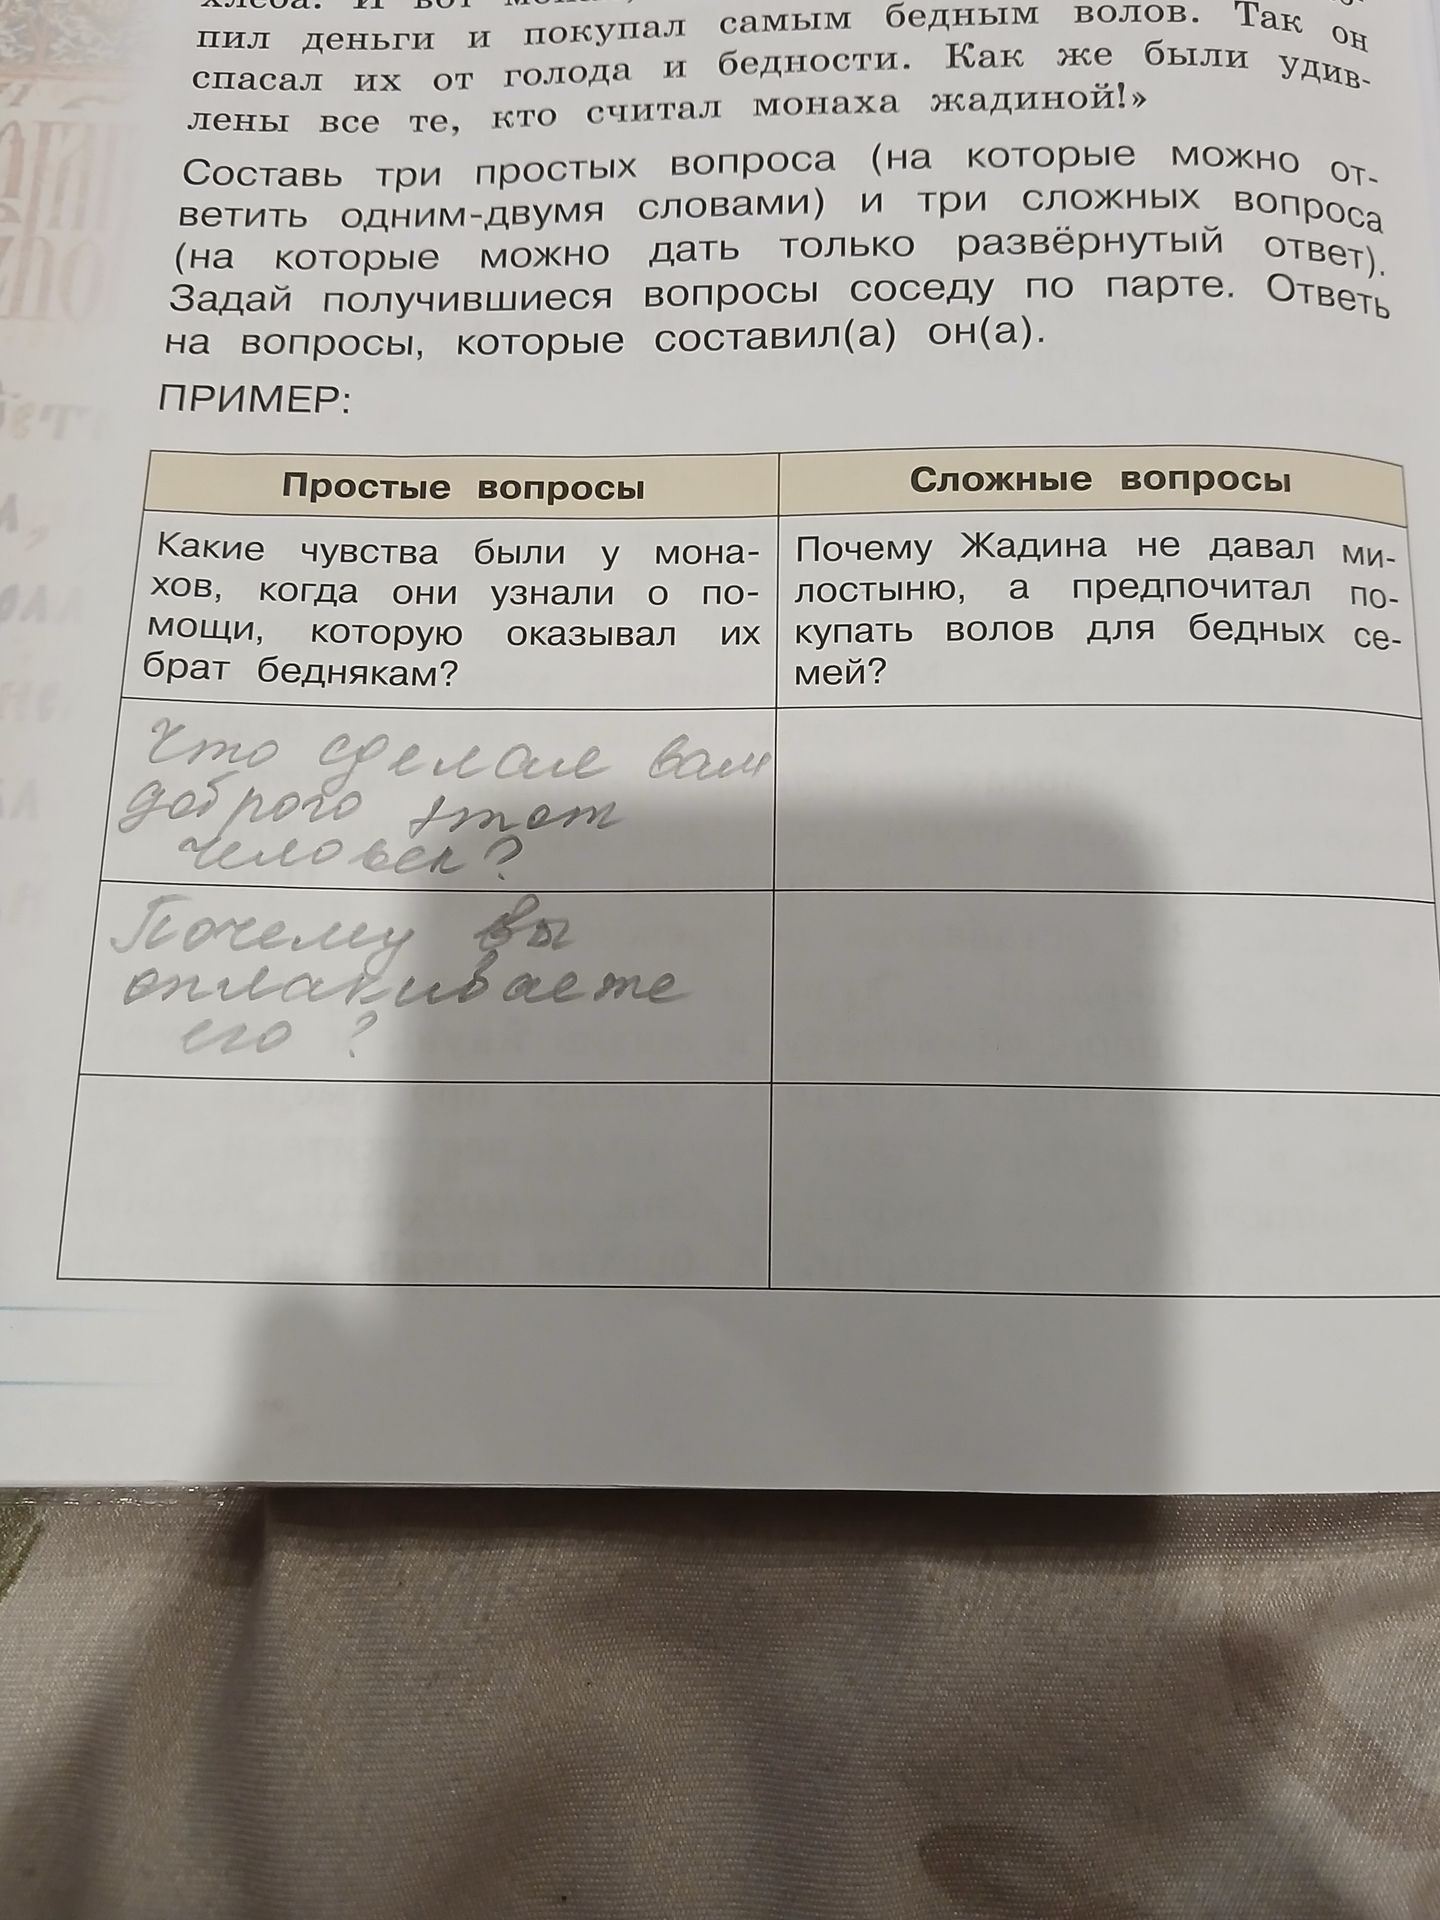 пил деньги и покупал самым бедным волов. Так он
спасал их от голода и бедности. Как же были удив-
лены все те, кто считал монаха жадиной!»
Составь три простых вопроса (на которые можно от-
ветить одним-двумя словами) и три сложных вопроса
(на которые можно дать только развёрнутый ответ).
Задай получившиеся вопросы соседу по парте. Ответь
на вопросы, которые составил(а) он(а).
ПРИМЕР:
Простые вопросы
Сложные вопросы
Какие чувства были у мона-
хов, когда они узнали о по-
мощи, которую оказывал их
брат беднякам?
Почему Жадина не давал ми-
лостыню, а предпочитал по-
купать волов для бедных се-
мей?
Что сделал вам
доброго этот
человек?
Почему вы
оплакиваете
его?